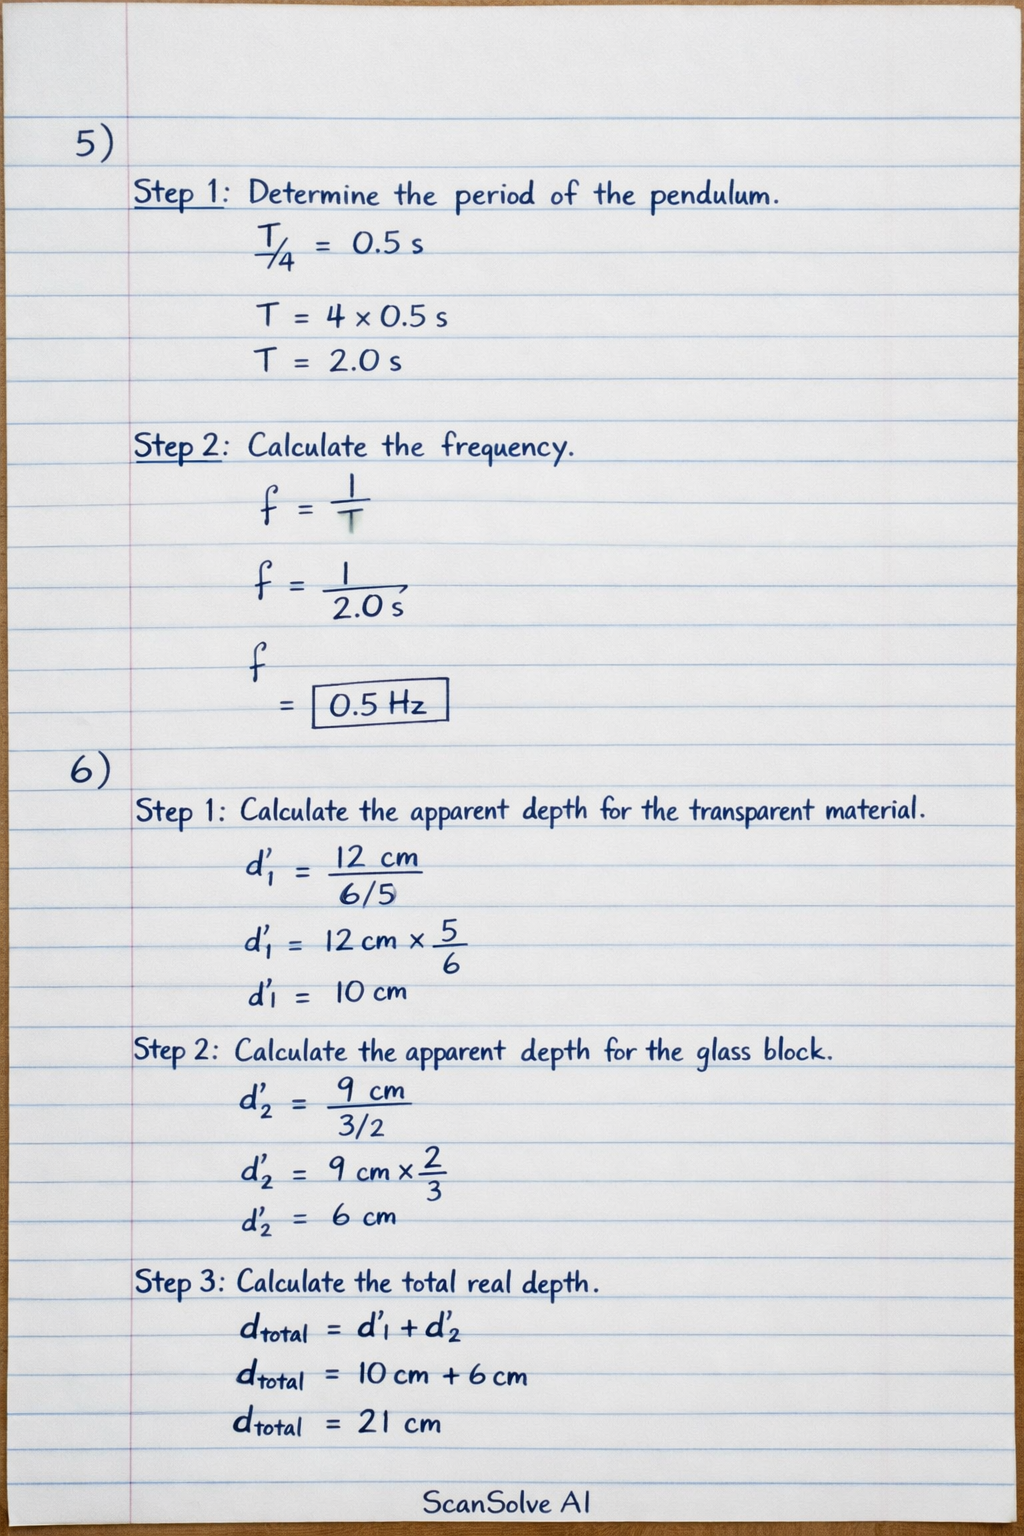 5)
Step 1: Determine the period of the pendulum.
T/4 = 0.5 s
T = 4 × 0.5 s
T = 2.0 s
Step 2: Calculate the frequency.
f = 1/T
f = 1/2.0 s
f
= 0.5 Hz
6)
Step 1: Calculate the apparent depth for the transparent material.
d'₁ = 12 cm / 6/5
d'₁ = 12 cm × 5/6
d'₁ = 10 cm
Step 2: Calculate the apparent depth for the glass block.
d'₂ = 9 cm / 3/2
d'₂ = 9 cm × 2/3
d'₂ = 6 cm
Step 3: Calculate the total real depth.
d total = d'₁ + d'₂
d total = 10 cm + 6 cm
d total = 21 cm
ScanSolve AI